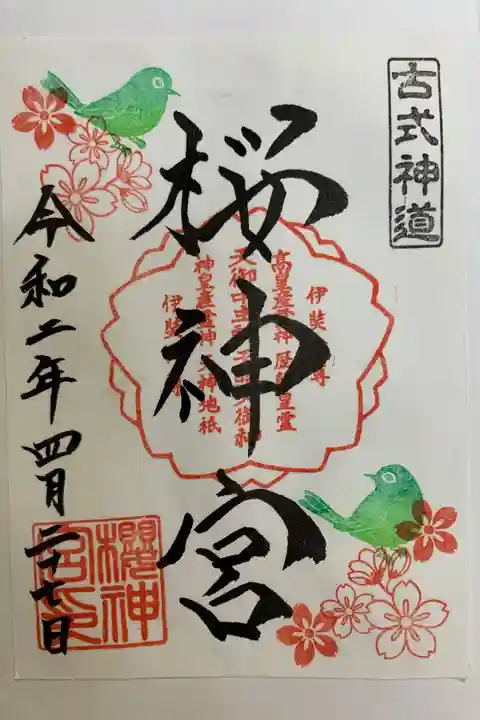 古式神道
桜神宮
伊弉
高皇産霊神 歴代皇霊
天御中主
神皇産霊神 天神地祇
伊弉
令和二年四月二十七日
櫻神
宮印